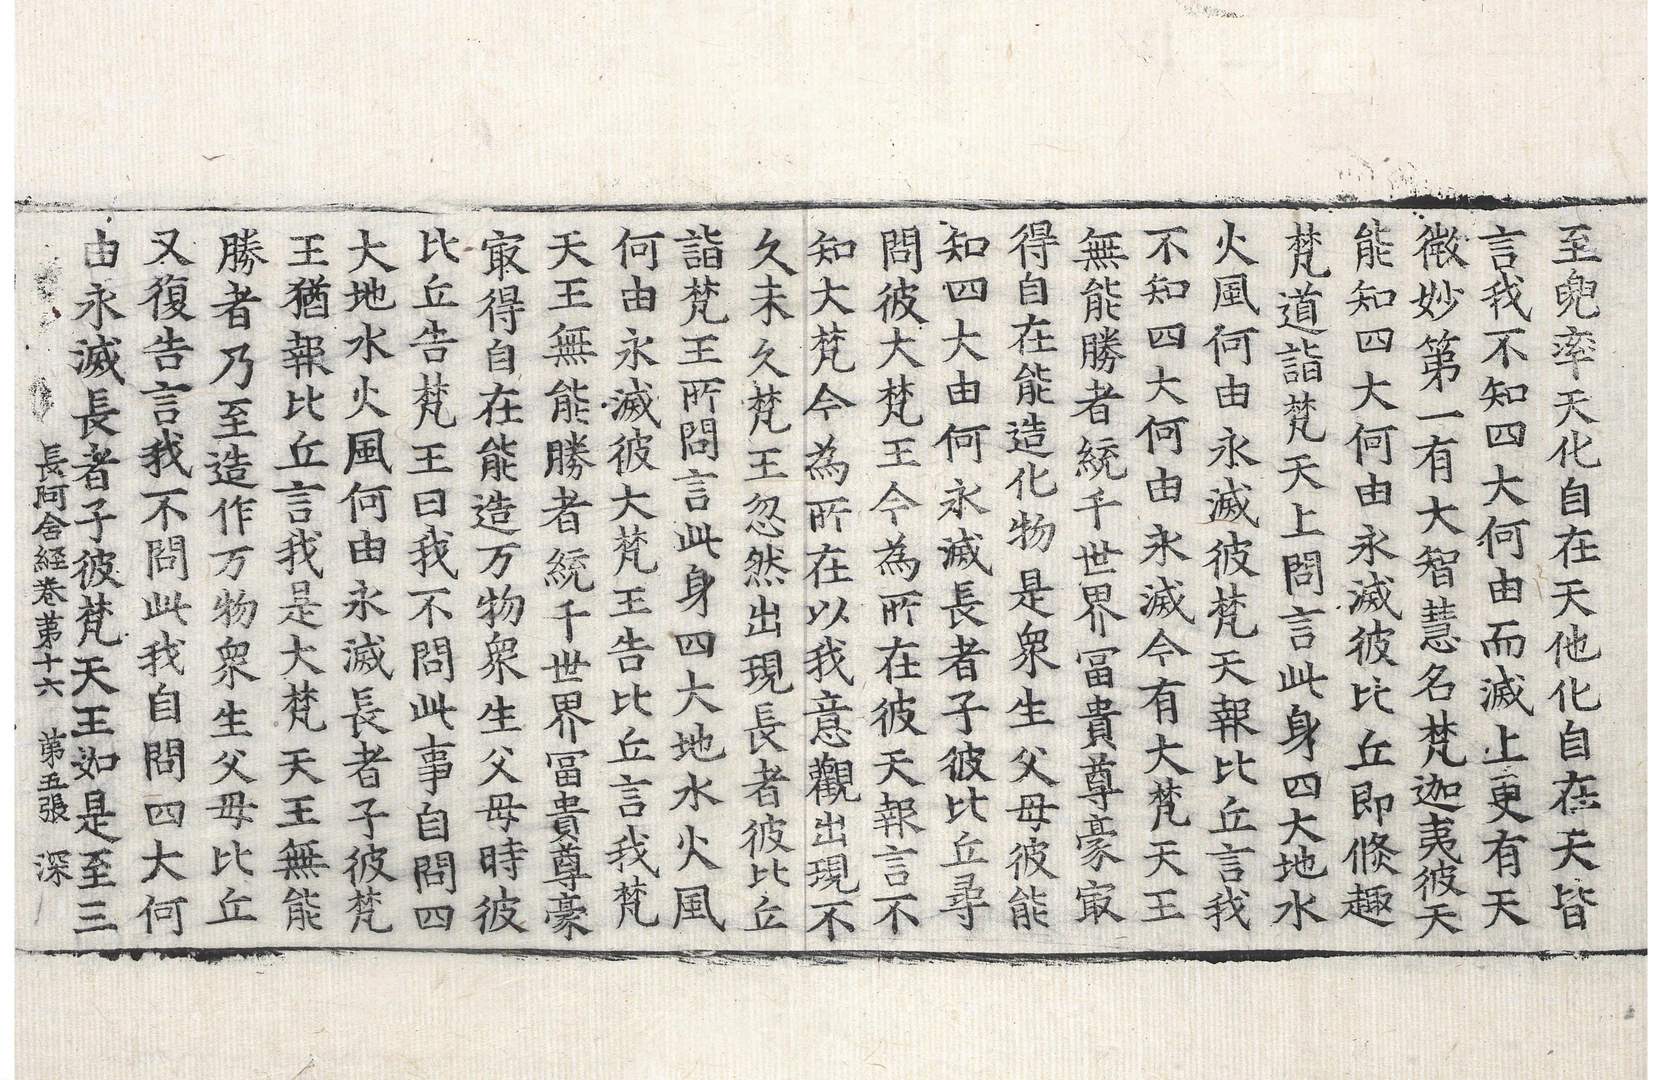 至兜率天化自在天他化自在天皆
言我不知四大何由而滅上更有天
微妙第一有大智慧名梵迦夷彼天
能知四大何由永滅彼比丘即倐趣
梵道詣梵天上問言此身四大地水
火風何由永滅彼梵天報比丘言我
不知四大何由永滅今有大梵天王
無能勝者統千世界冨貴尊豪㝡
得自在能造化物是衆生父母彼能
知四大由何永滅長者子彼比丘尋
問彼大梵王今為所在彼天報言不
知大梵今為所在以我意觀出現不
久未久梵王忽然出現長者彼比丘
詣梵王所問言此身四大地水火風
何由永滅彼大梵王告比丘言我梵
天王無能勝者統千世界冨貴尊豪
㝡得自在能造万物衆生父母時彼
比丘告梵王曰我不問此事自問四
大地水火風何由永滅長者子彼梵
王猶報比丘言我是大梵天王無能
勝者乃至造作万物衆生父母比丘
又復告言我不問此我自問四大何
由永滅長者子彼梵天王如是至三
長阿含經卷第十六 第五張 深